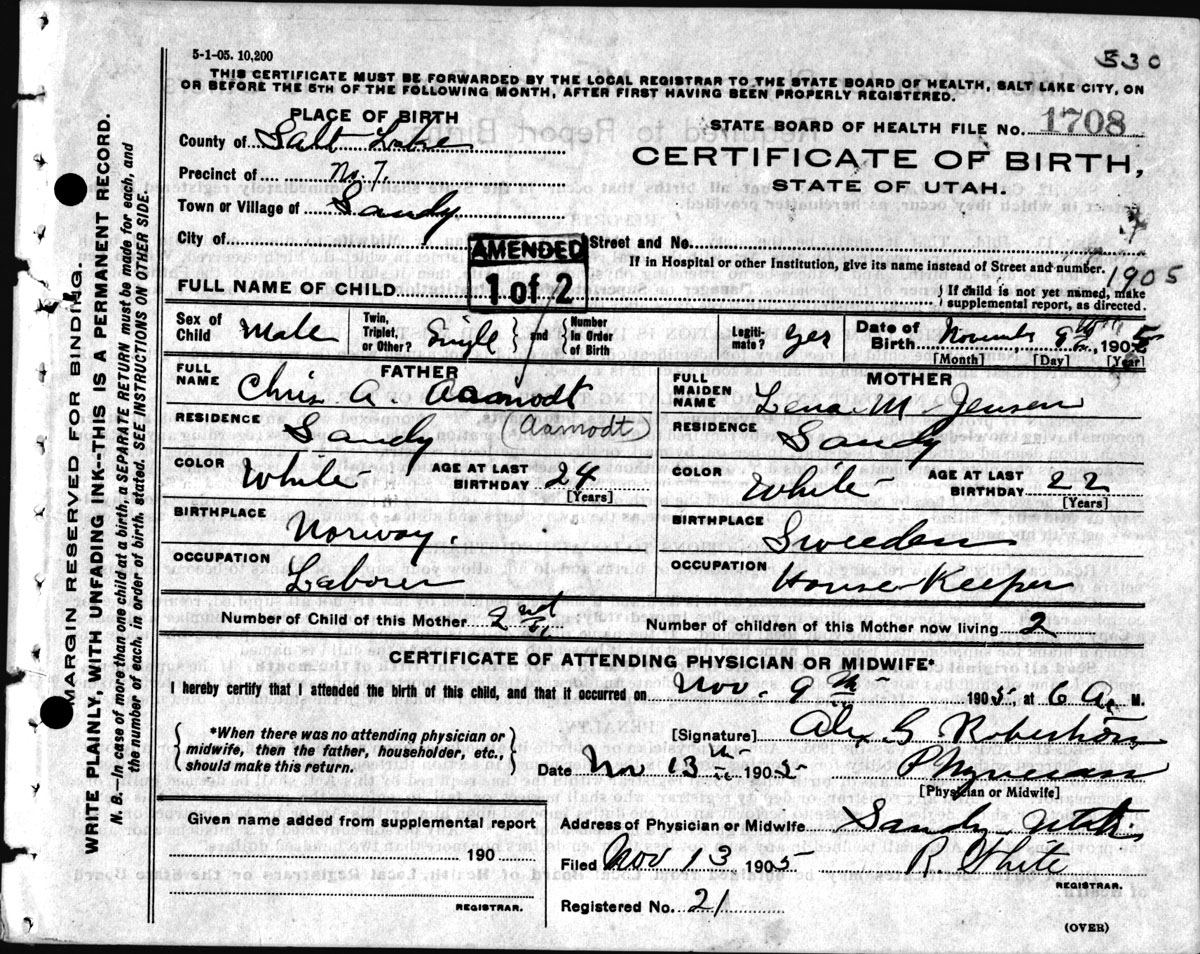 5-1-05. 10,200
530
THIS CERTIFICATE MUST BE FORWARDED BY THE LOCAL REGISTRAR TO THE STATE BOARD OF HEALTH, SALT LAKE CITY, ON
OR BEFORE THE 5TH OF THE FOLLOWING MONTH, AFTER FIRST HAVING BEEN PROPERLY REGISTERED.
PLACE OF BIRTH
County of Salt Lake
Precinct of No. 7,
Town or Village of Sandy
City of
STATE BOARD OF HEALTH FILE No. 1708
CERTIFICATE OF BIRTH,
STATE OF UTAH.
AMENDED
1 of 2
Street and No.
If in Hospital or other Institution, give its name instead of Street and number.
1905
FULL NAME OF CHILD
If child is not yet named, make
supplemental report, as directed.
Sex of Child Male Twin, Triplet, or Other? Single and Number in Order of Birth Legiti-mate? Yes Date of Birth November 9th, 1905
[Month] [Day] [Year]
FATHER
FULL NAME Chris A Aamodt
RESIDENCE Sandy (Aamodt)
COLOR White AGE AT LAST BIRTHDAY 24
[Years]
BIRTHPLACE Norway.
OCCUPATION Laborer
MOTHER
FULL MAIDEN NAME Lena M Jensen
RESIDENCE Sandy
COLOR White AGE AT LAST BIRTHDAY 22
[Years]
BIRTHPLACE Sweeden
OCCUPATION House Keeper
Number of Child of this Mother 2nd Number of children of this Mother now living 2
CERTIFICATE OF ATTENDING PHYSICIAN OR MIDWIFE*
I hereby certify that I attended the birth of this child, and that it occurred on Nov. 9th 1905, at 6 A. M.
*When there was no attending physician or
midwife, then the father, householder, etc.,
should make this return.
[Signature] Alex G Robertson
Date Nov 13th 1905 Physician
[Physician or Midwife]
Given name added from supplemental report
190
REGISTRAR.
Address of Physician or Midwife Sandy Utah.
Filed Nov 13 1905 R. White
REGISTRAR.
Registered No. 21
(OVER)
MARGIN RESERVED FOR BINDING.
WRITE PLAINLY, WITH UNFADING INK--THIS IS A PERMANENT RECORD.
N. B.—In case of more than one child at a birth, a SEPARATE RETURN must be made for each, and
the number of each, in order of birth, stated. SEE INSTRUCTIONS ON OTHER SIDE.